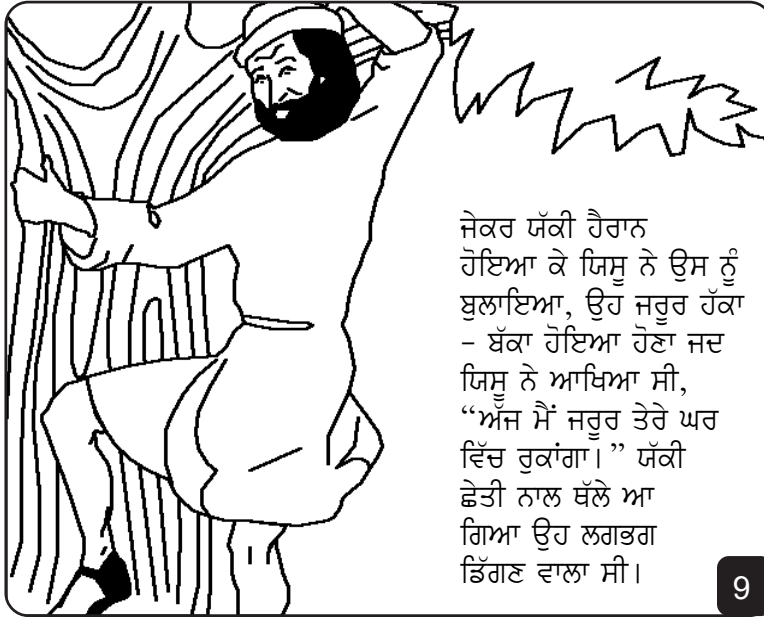 ਜੇਕਰ ਯੱਕੀ ਹੈਰਾਨ
ਹੋਇਆ ਕੇ ਯਿਸੂ ਨੇ ਉਸ ਨੂੰ
ਬੁਲਾਇਆ, ਉਹ ਜਰੂਰ ਹੱਕਾ
- ਬੱਕਾ ਹੋਇਆ ਹੋਣਾ ਜਦ
ਯਿਸੂ ਨੇ ਆਖਿਆ ਸੀ,
“ਅੱਜ ਮੈਂ ਜਰੂਰ ਤੇਰੇ ਘਰ
ਵਿੱਚ ਰੁਕਾਂਗਾ। ” ਯੱਕੀ
ਛੇਤੀ ਨਾਲ ਥੱਲੇ ਆ
ਗਿਆ ਉਹ ਲਗਭਗ
ਡਿੱਗਣ ਵਾਲਾ ਸੀ।
9